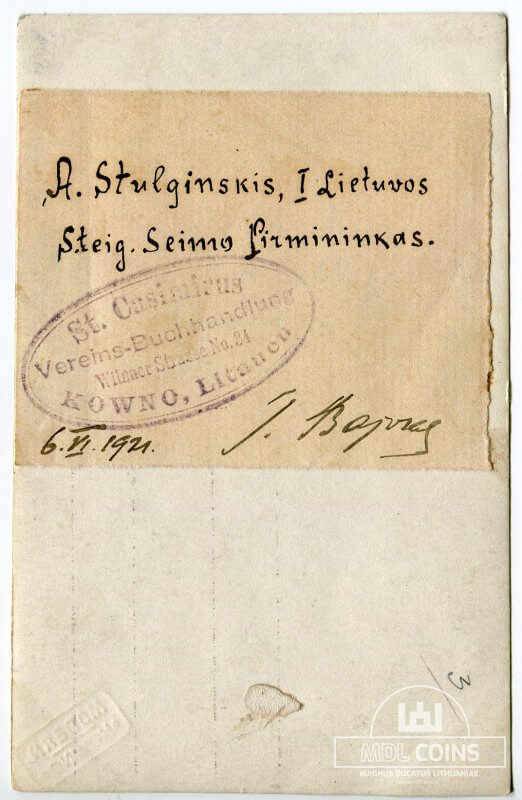 A. Stulginskis, I Lietuvos
Steig. Seimo Pirmininkas.
St. Casimirus
Vereins-Buchhandlung
Wilnaer Strasse No. 21
KOWNO, Litauen
6.VI.1921.
3
MDL COINS
MAGNUS DUCATUS LITHUANIAE